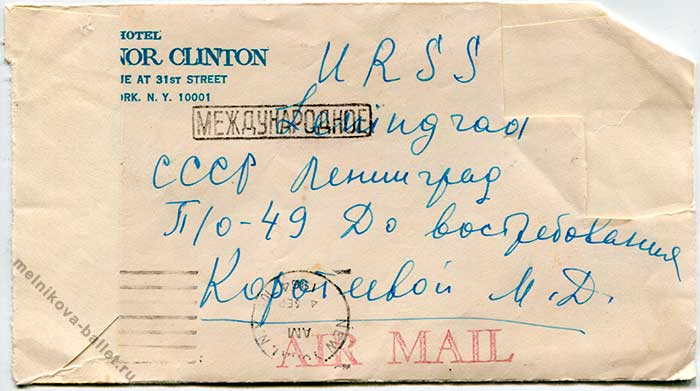 HOTEL
NOR CLINTON
UE AT 31ST STREET
ORK, N. Y. 10001
URSS
МЕЖДУНАРОДНОЕ
Leningrad
СССР Ленинград
П/о-49 До востребования
Коротеевой М.Д.
AM
4 SEP
1964
NEW
AIR MAIL
melnikova-ballet.ru